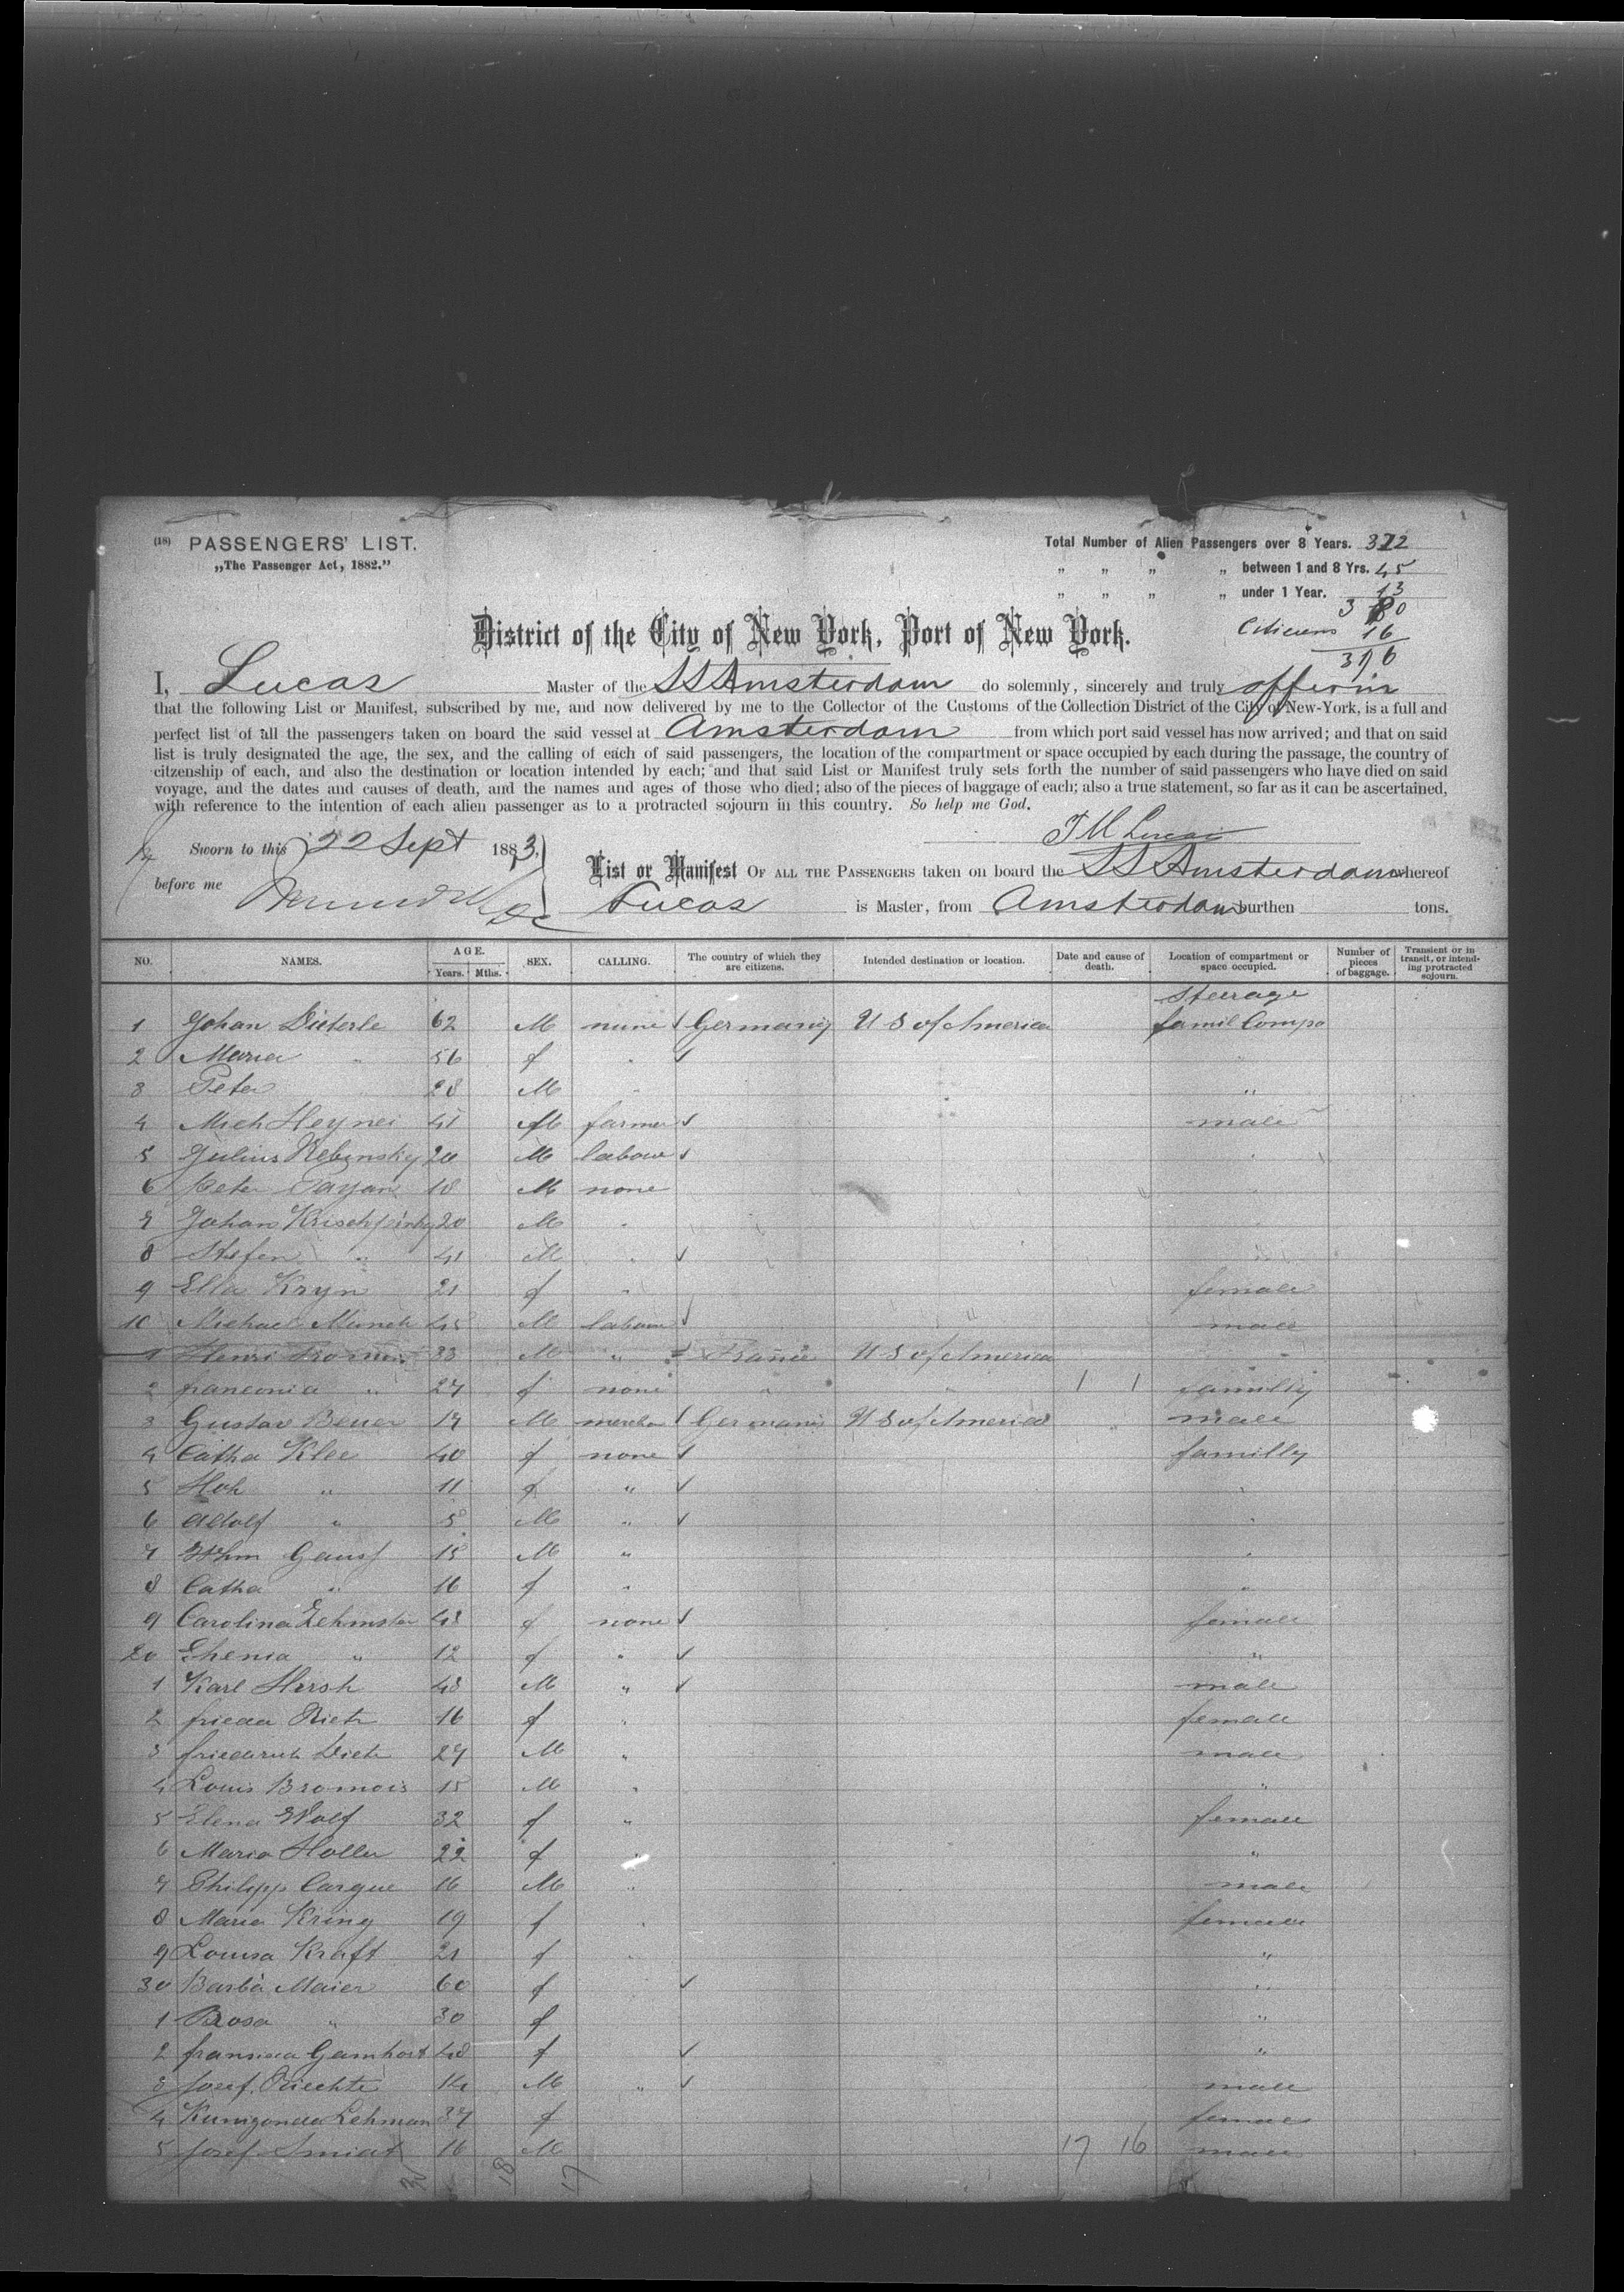 (18) PASSENGERS' LIST.
„The Passenger Act, 1882."
Total Number of Alien Passengers over 8 Years. 322
„ „ „ „ between 1 and 8 Yrs. 45
„ „ „ „ under 1 Year. 13
380
Citicens 16
396
District of the City of New York, Port of New York.
I, Lucas Master of the SS Amsterdam do solemnly, sincerely and truly
that the following List or Manifest, subscribed by me, and now delivered by me to the Collector of the Customs of the Collection District of the City of New-York, is a full and
perfect list of all the passengers taken on board the said vessel at Amsterdam from which port said vessel has now arrived; and that on said
list is truly designated the age, the sex, and the calling of each of said passengers, the location of the compartment or space occupied by each during the passage, the country of
citzenship of each, and also the destination or location intended by each; and that said List or Manifest truly sets forth the number of said passengers who have died on said
voyage, and the dates and causes of death, and the names and ages of those who died; also of the pieces of baggage of each; also a true statement, so far as it can be ascertained,
with reference to the intention of each alien passenger as to a protracted sojourn in this country. So help me God.
Lucas
Sworn to this 22 Sept 1883
before me
List or Manifest OF ALL THE PASSENGERS taken on board the SS Amsterdam whereof
Lucas is Master, from Amsterdam burthen tons.
NO. NAMES. AGE. Years. Mths. SEX. CALLING. The country of which they are citizens. Intended destination or location. Date and cause of death. Location of compartment or space occupied. Number of pieces of baggage. Transient or in transit, or intending protracted sojourn.
Steerage
1 Johan Dieterle 62 M none Germany U S of America famil Comp
2 Maria " 56 f "
3 Peter 28 M "
4 Mich Heyner 41 M farmer male
5 Julius Rebinsky 20 M labour
6 Peter 18 M none
7 Johan 20 M
8 Stefan " 41 M
9 Ella Kryn 21 f female
10 Michael Munch 45 M labour male
1 Henri 33 M " France U S of America
2 franconia " 27 f none " " 1 1 familly
3 Gustav Beuer 17 M Germanis U S of America male
4 Catha Klee 40 f none familly
5 " 11 f "
6 Adolf " 5 M "
7 Whm Gauss 15 M "
8 Catha " 16 f "
9 Carolina Zehmster 48 f none female
20 " 12 f " "
1 Karl Hirsh 48 M " male
2 frieda 16 f female
3 friedrich 27 M male
4 Louis Bromois 15 M "
5 Elena Wolf 32 f female
6 Maria Holler 22 f "
7 Philipp Cargue 16 M male
8 Maria Kring 19 f female
9 Louisa Kraft 21 f "
30 Barba Maier 60 f "
1 Rosa " 30 f "
2 Gamhort 48 f "
3 Josef 14 M " male
4 Kunigonda Lehman 37 f female
5 Josef 16 M 17 16 male
18 17